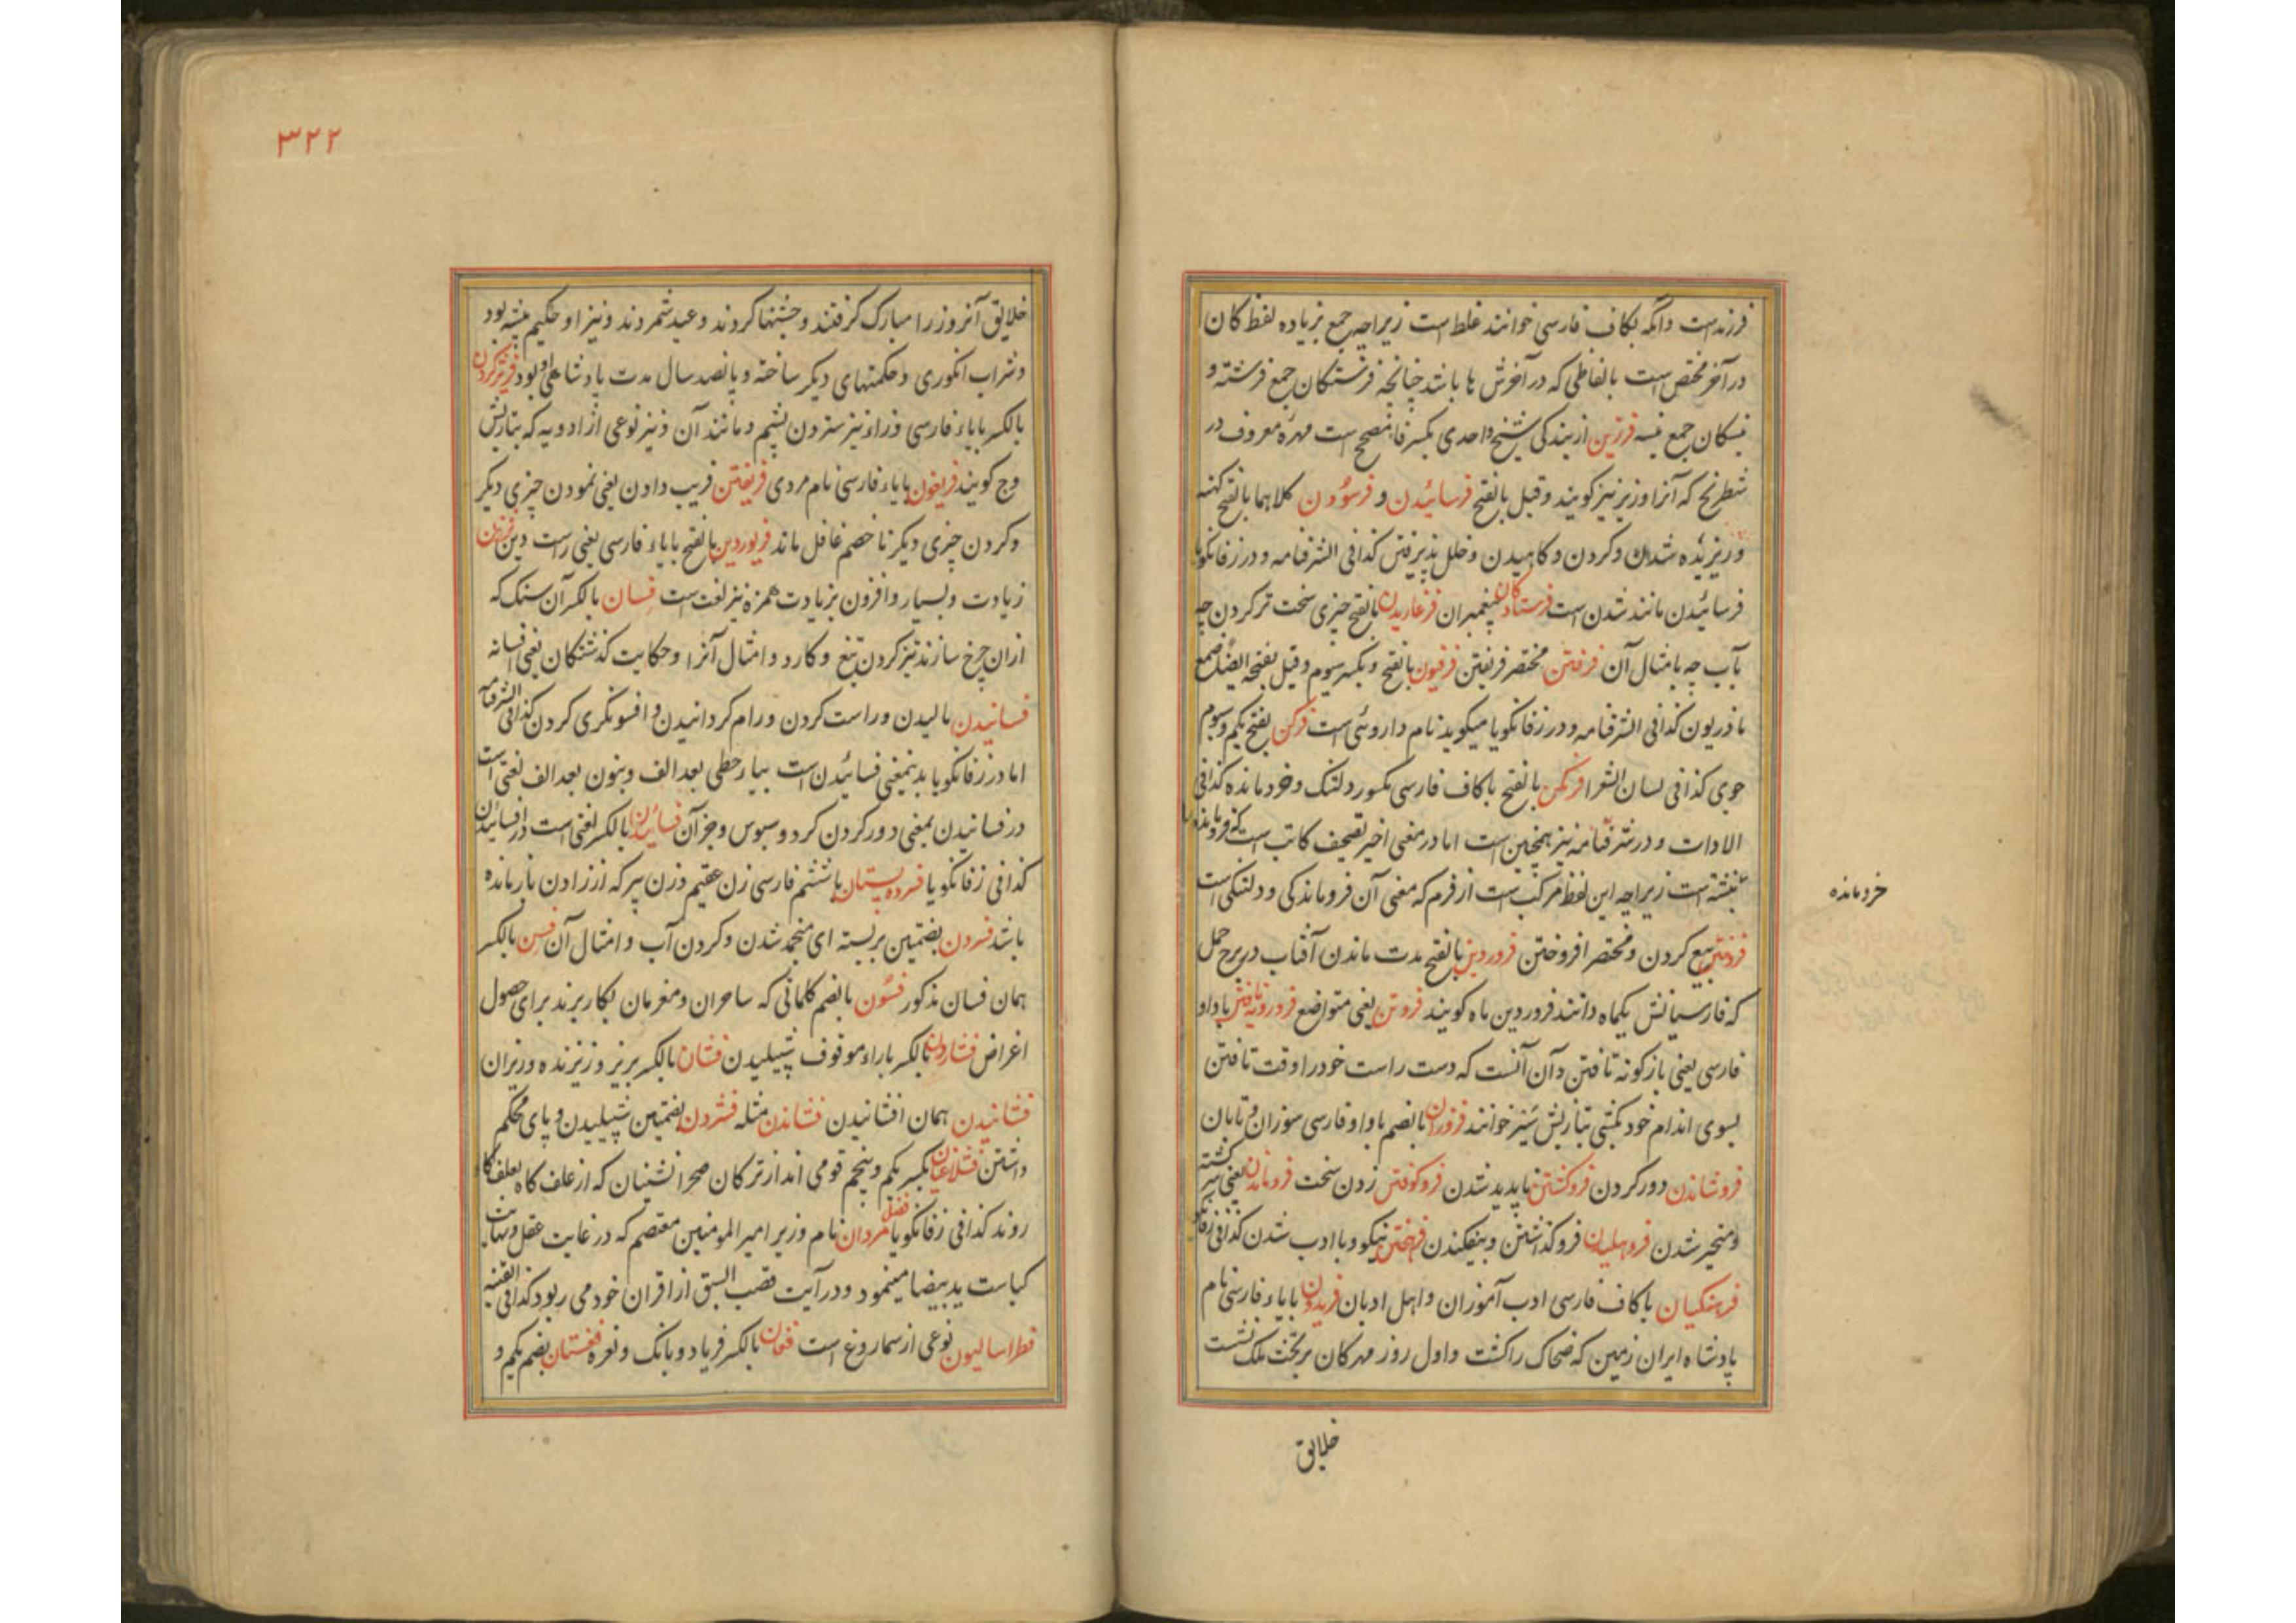 فرزندست وانکه بکاف فارسی خوانند غلط است زیراچه جمع بزیاده لفظ کان
در آخر مختص است بالفاظی که در آخرش ها باشد چنانچه فرشتکان جمع فرشته و
جمع فرزین از بندکی شیخ واحدی بکسر فا مصحح است مهره معروف در
شطرنج که آنرا وزیر نیز کویند وقیل بالفتح فرسائیدن و فرسودن کلاهما بالفتح کهنه
و ریزیده شدن و کردن و کاهیدن و خلل پذیرفتن کذا فی الشرفنامه و در زفانکویا
فرسائیدن مانند شدن است فرستادکان پیغمبران فرغاریدن بالفتح چیزی سخت تر کردن چه
بآب چه بامثال آن فرفتن مختصر فریفتن فرفیون بالفتح و بکسر سیوم وقیل بفتحه ایضا صمغ
ماذریون کذا فی الشرفنامه و در زفانکویا میکوید نام داروئی است فرکن بفتح یکم و سیوم
جوی کذا فی لسان الشعرا فرکن بالفتح باکاف فارسی مکسور دلتنک و خرد مانده کذا فی
الادات و در شرفنامه نیز همچنین است اما در معنی اخیر تصحیف کاتب است که فرومانده را
نبشته است زیراچه این لفظ مرکب است از فرم که معنی آن فروماندکی و دلتنکی است
خرد مانده
فروختن بیع کردن و مختصر افروختن فروردین بالفتح مدت ماندن آفتاب در برج حمل
که فارسیانش یکماه دانند فروردین ماه کویند فروتن یعنی متواضع باواو
فارسی یعنی باژکونه تافتن و آن آنست که دست راست خود را وقت تافتن
بسوی اندام خود بتازیش خوانند فروزان بالضم باواو فارسی سوزان و تابان
فروشاندن دور کردن فروکشتن ناپدید شدن فروکوفتن زدن سخت فروماندن یعنی سرکشته
و متحیر شدن فروهلیدن فرو کذاشتن و بیفکندن فرهختن نیکو و با ادب شدن کذا فی زفانکویا
فرهنکیان باکاف فارسی ادب آموزان و اهل ادبان فریدون بایاء فارسی نام
پادشاه ایران زمین که ضحاک را کشت و اول روز مهرکان بر تخت ملک نشست
خلایق
۳۲۲
خلایق آنروز را مبارک کرفتند و جشنها کردند و عید شمردند و نیز او حکیم پیشه بود
و شراب انکوری و حکمتهای دیکر ساخته و پانصد سال مدت پادشاهی او بود
بالکسر بایاء فارسی و زاء نیز ستردن پشم و مانند آن و نیز نوعی از ادویه که بتازیش
وج کویند فریغون بایاء فارسی نام مردی فریفتن فریب دادن یعنی نمودن چیزی دیکر
و کردن چیزی دیکر تا خصم غافل ماند فریوردین بالفتح بایاء فارسی یعنی راست دین فزون
زیادت و بسیار و افزون بزیادت همزه نیز لغت است فسان بالکسر آن سنک که
ازان چرخ سازند تیز کردن تیغ و کارد و امثال آنرا و حکایت کذشتکان یعنی افسانه
فسانیدن مالیدن و راست کردن و رام کردانیدن و افسونکری کردن کذا فی الشرفنامه
اما در زفانکویا بدینمعنی فسائیدن است بیاء حطی بعد الف و بنون بعد الف لغتی است
در فسانیدن بمعنی دور کردن کرد و سبوس و جز آن فسائیدن بالکسر لغتی است در افسائیدن
کذا فی زفانکویا فسرده پستان باششم فارسی زن عقیم و زن پیر که از زادن باز مانده
باشد فسردن بضمتین بر بسته ای منجمد شدن و کردن آب و امثال آن فسن بالکسر
همان فسان مذکور فسون بالضم کلماتی که ساحران و مغرمان بکار برند برای حصول
اغراض فشاردن بالکسر باراء موقوف پشیلیدن فشان بالکسر بریز و ریزنده و ریزان
فشانیدن همان افشانیدن فشاندن مثله فشردن بضمتین پشیلیدن و پای محکم
داشتن بکسر یکم و پنجم قومی اند از ترکان صحرا نشینان که از علف کاه بعلف کاه
روند کذا فی زفانکویا فضل مردان نام وزیر امیر المومنین معتصم که در غایت عقل و نهایت
کیاست ید بیضا مینمود و در آیت قصب السبق از اقران خود می ربود کذا فی القنیه
فطراسالیون نوعی از سماروغ است فغان بالکسر فریاد و بانک و نعره فغستان بضم یکم و